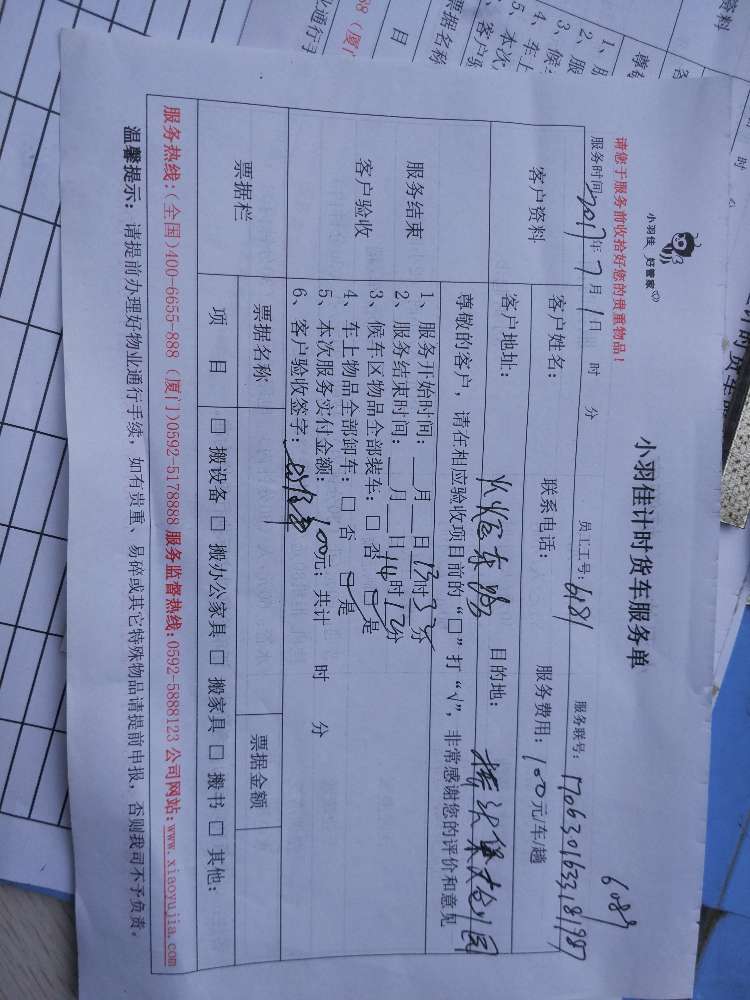 小羽佳 好管家
小羽佳计时货车服务单
请您于服务前收拾好您的贵重物品！
6089
服务时间：2017年7月1日 时 分 员工工号：6181 服务联号：1706301633181987
客户资料
客户姓名： 联系电话： 服务费用：100元/车/趟
客户地址： 目的地：
服务结束
客户验收
尊敬的客户，请在相应验收项目前的“□”打“√”，非常感谢您的评价和意见
1、服务开始时间：__月__日13时32分
2、服务结束时间：__月__日14时12分
3、候车区物品全部装车：□ 否 □ 是
4、车上物品全部卸车：□ 否 □ 是
5、本次服务实付金额：100元；共计 时 分
6、客户验收签字：
票据栏
票据名称 票据金额
项 目 □ 搬设备 □ 搬办公家具 □ 搬家具 □ 搬书 □ 其他：
服务热线：(全国)400-6655-888 (厦门)0592-5178888 服务监督热线：0592-5888123 公司网站：www.xiaoyujia.com
温馨提示：请提前办理好物业通行手续，如有贵重、易碎或其它特殊物品请提前申报，否则我司不予负责。